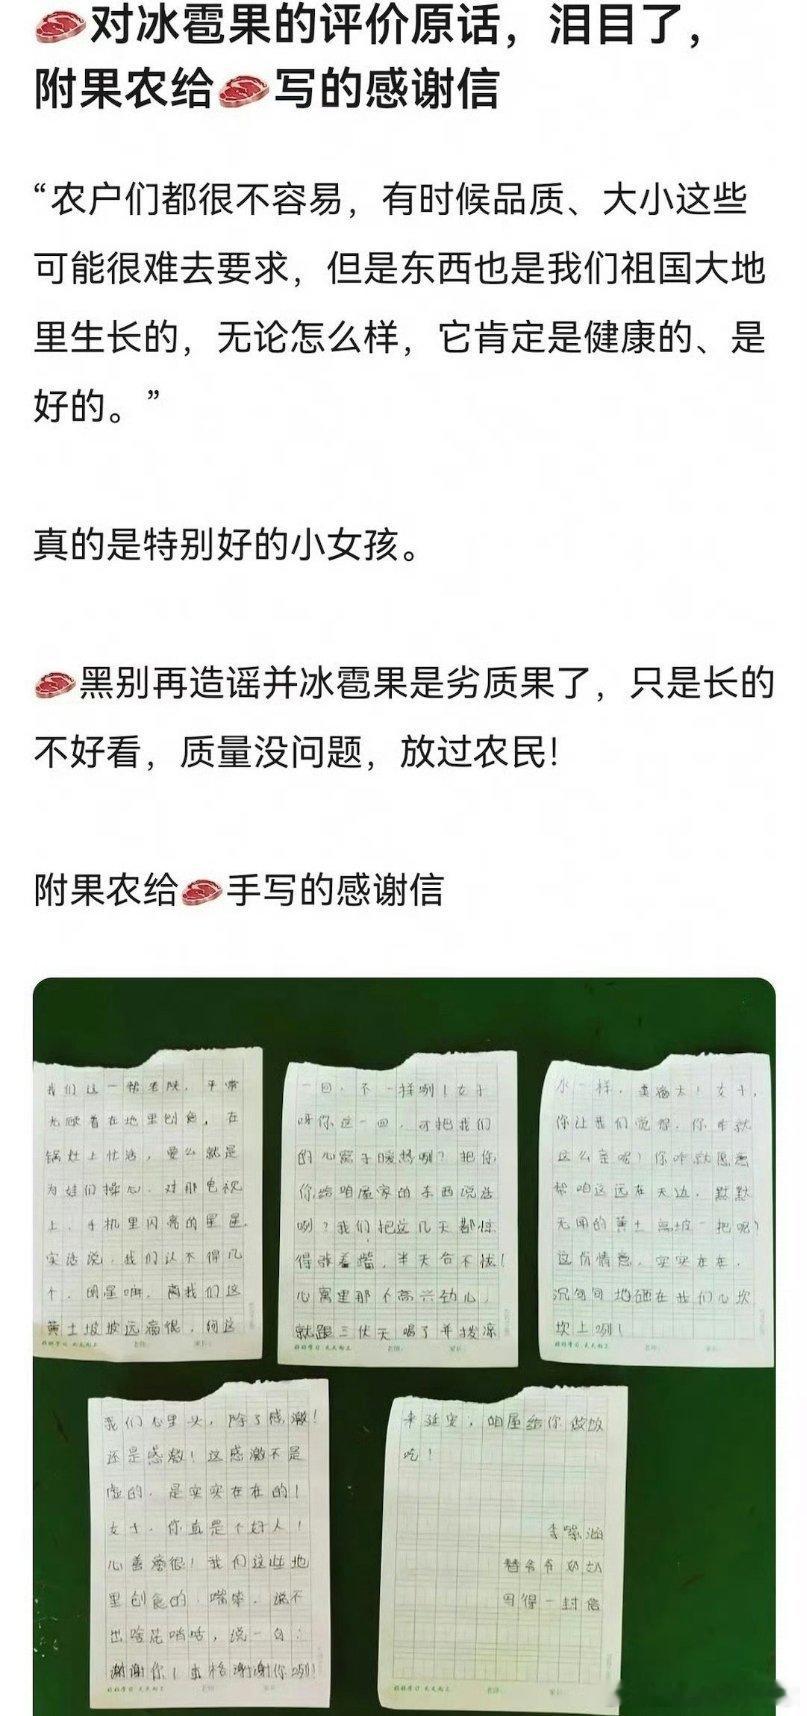 🥩对冰雹果的评价原话，泪目了，
附果农给🥩写的感谢信
“农户们都很不容易，有时候品质、大小这些
可能很难去要求，但是东西也是我们祖国大地
里生长的，无论怎么样，它肯定是健康的、是
好的。”
真的是特别好的小女孩。
🥩黑别再造谣并冰雹果是劣质果了，只是长的
不好看，质量没问题，放过农民！
附果农给🥩手写的感谢信
我们这一帮老陕，平常
光顾着在地里刨食，在
锅灶上忙活，要么就是
为娃们操心。对那电视
上、手机里闪亮的星星，
实话说，我们认不得几
个。明星嘛，离我们这
黄土坡坡远痛很，问这
好好学习 天天向上
老师：
家长：
一回，不一样咧！女子
呀你这一回，可把我们
的心窝子暖热咧？把你
你给咱屋家的东西说话
咧？我们把这几天都惊
得张着嘴，半天合不拢！
心窝里那个高兴劲儿，
就跟三伏天喝了井拨凉
好好学习 天天向上
老师：
家长：
水一样，美滴太！女子，
你让我们觉得，你咋就
这么亲呢！你咋就愿意
帮咱这远在天边，默默
无闻的黄土高坡一把呢？
这份情意，实实在在，
沉甸甸地砸在我们心坎
坎上咧！
好好学习 天天向上
老师：
家长：
我们心里头，除了感激！
还是感激！这感激不是
虚的，是实实在在的！
女士，你真是个好人！
心善滴很！我们这些地
里刨食的，嘴笨，说不
出啥花哨话，说一句：
谢谢你！来格谢谢你咧！
好好学习 天天向上
老师：
家长：
来延安，咱屋给你做饭
吃！
李 涵
替爷爷奶奶
写得一封信
好好学习 天天向上
老师：
家长：